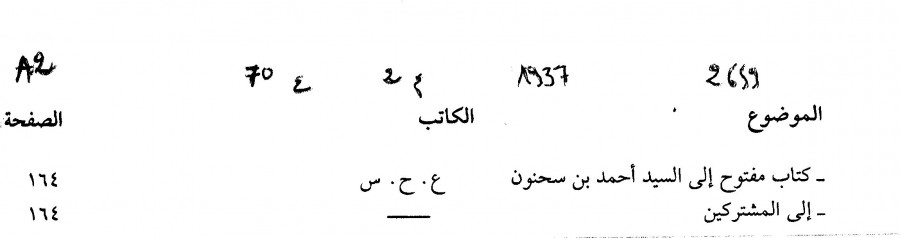 2659 1937 ع 2 ع 70 A2
الموضوع الكاتب الصفحة
ـ كتاب مفتوح إلى السيد أحمد بن سحنون ع. ح. س ١٦٤
ـ إلى المشتركين ـــــ ١٦٤